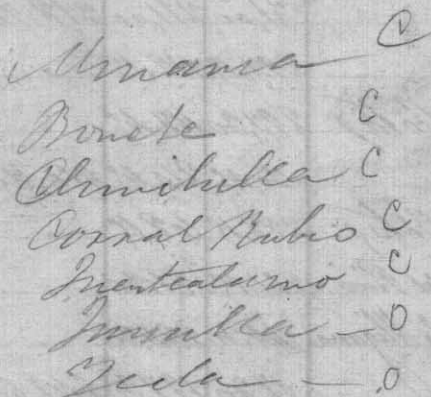 Almansa C
Bonete C
Chinchilla C
Corral Rubio C
Fuentealamo C
Jumilla - O
Yecla - O